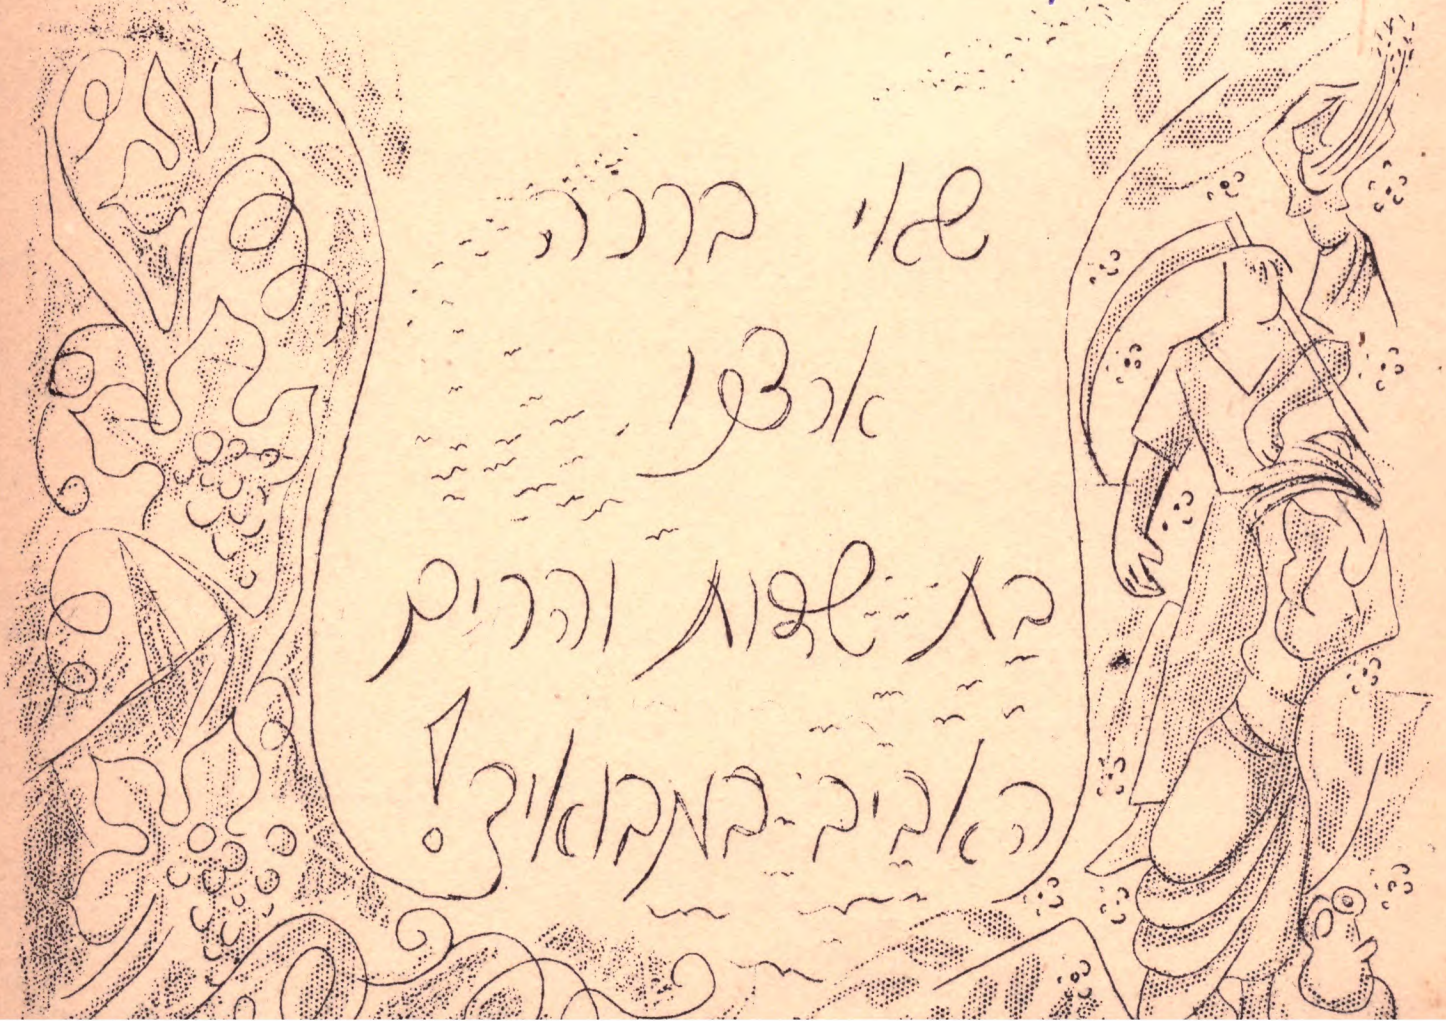 שאי ברכה
ארצנו
בת-שדות והרים
האביב-במבואיך!